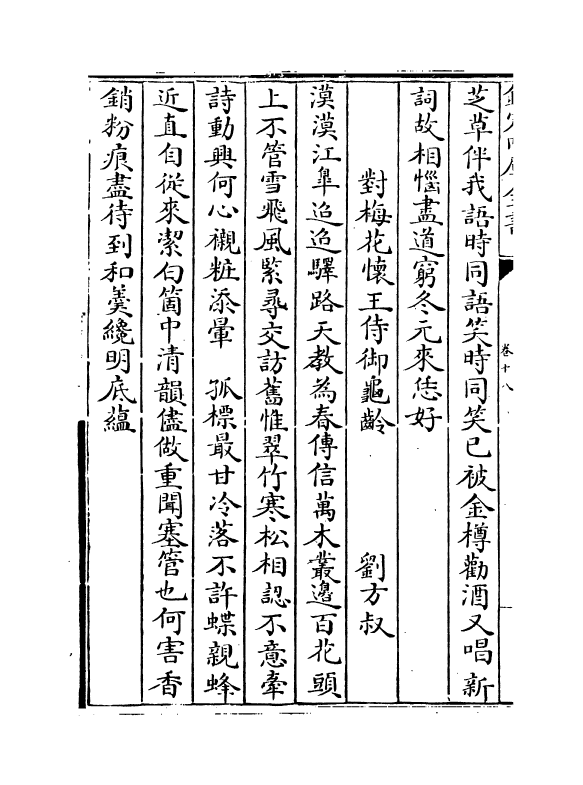 欽定四庫全書
卷十八
芝草伴我語時同語笑時同笑已被金樽勸酒又唱新
詞故相惱盡道窮冬元來恁好
對梅花懷王侍御龜齡　劉方叔
漠漠江臯迢迢驛路天教為春傳信萬木叢邉百花頭
上不管雪飛風緊尋交訪舊惟翠竹寒松相認不意牽
詩動興何心襯粧添暈　孤標最甘冷落不許蝶親蜂
近直自從來潔白箇中清韻儘做重聞塞管也何害香
銷粉痕盡待到和羮纔明底藴